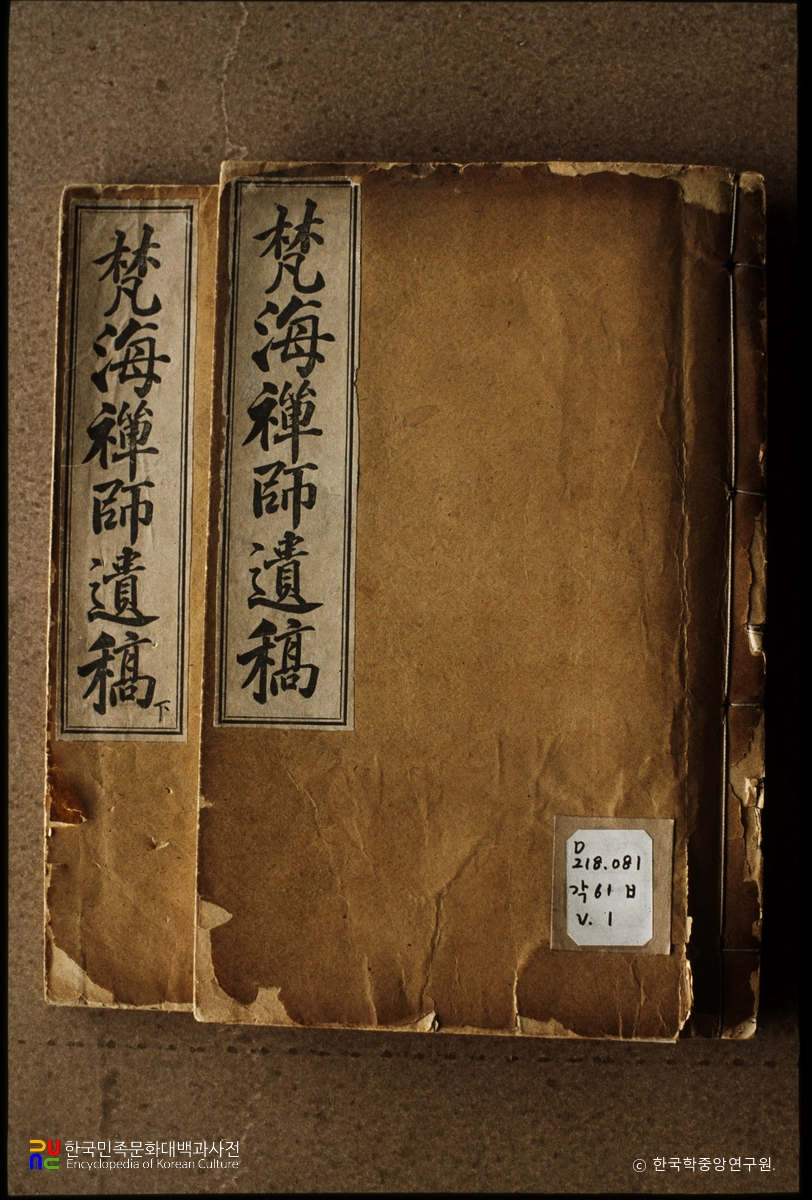 梵海禪師遺稿
梵海禪師遺稿下
D
218.081
각61ㅂ
V. 1
한국민족문화대백과사전
Encyclopedia of Korean Culture
ⓒ 한국학중앙연구원.